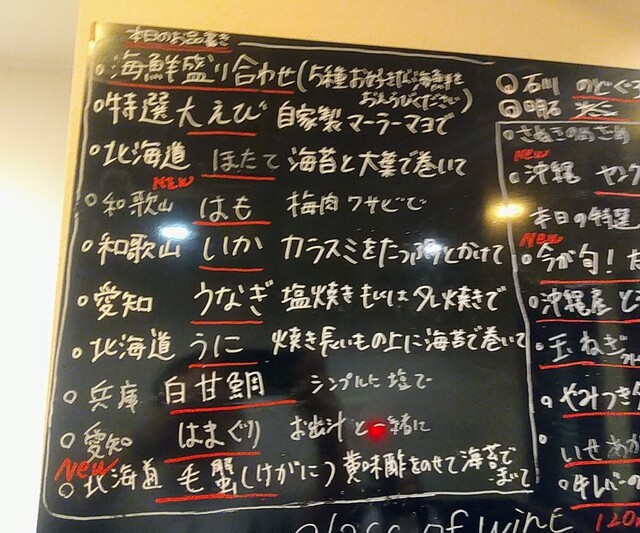 本日のお品書き
海鮮盛り合わせ(5種お好きな海鮮を
おえらびください)
特選大えび 自家製マーラーマヨで
北海道 ほたて 海苔と大葉で巻いて
New
和歌山 はも 梅肉ワサビで
和歌山 いか カラスミをたっぷりとかけて
愛知 うなぎ 塩焼きもしくはタレ焼きで
北海道 うに 焼き長いもの上に海苔で巻いて
兵庫 白甘鯛 シンプルに塩で
愛知 はまぐり お出汁と一緒に
New
北海道 毛蟹(けがに) 黄味酢をのせて海苔で
まいて
石川 のどぐろ
明石
New
沖縄 ヤング
本日の特選
New
今が旬!
沖縄産
玉ねぎ
やみつき
いせあか
牛レバーの
120
glass of wine